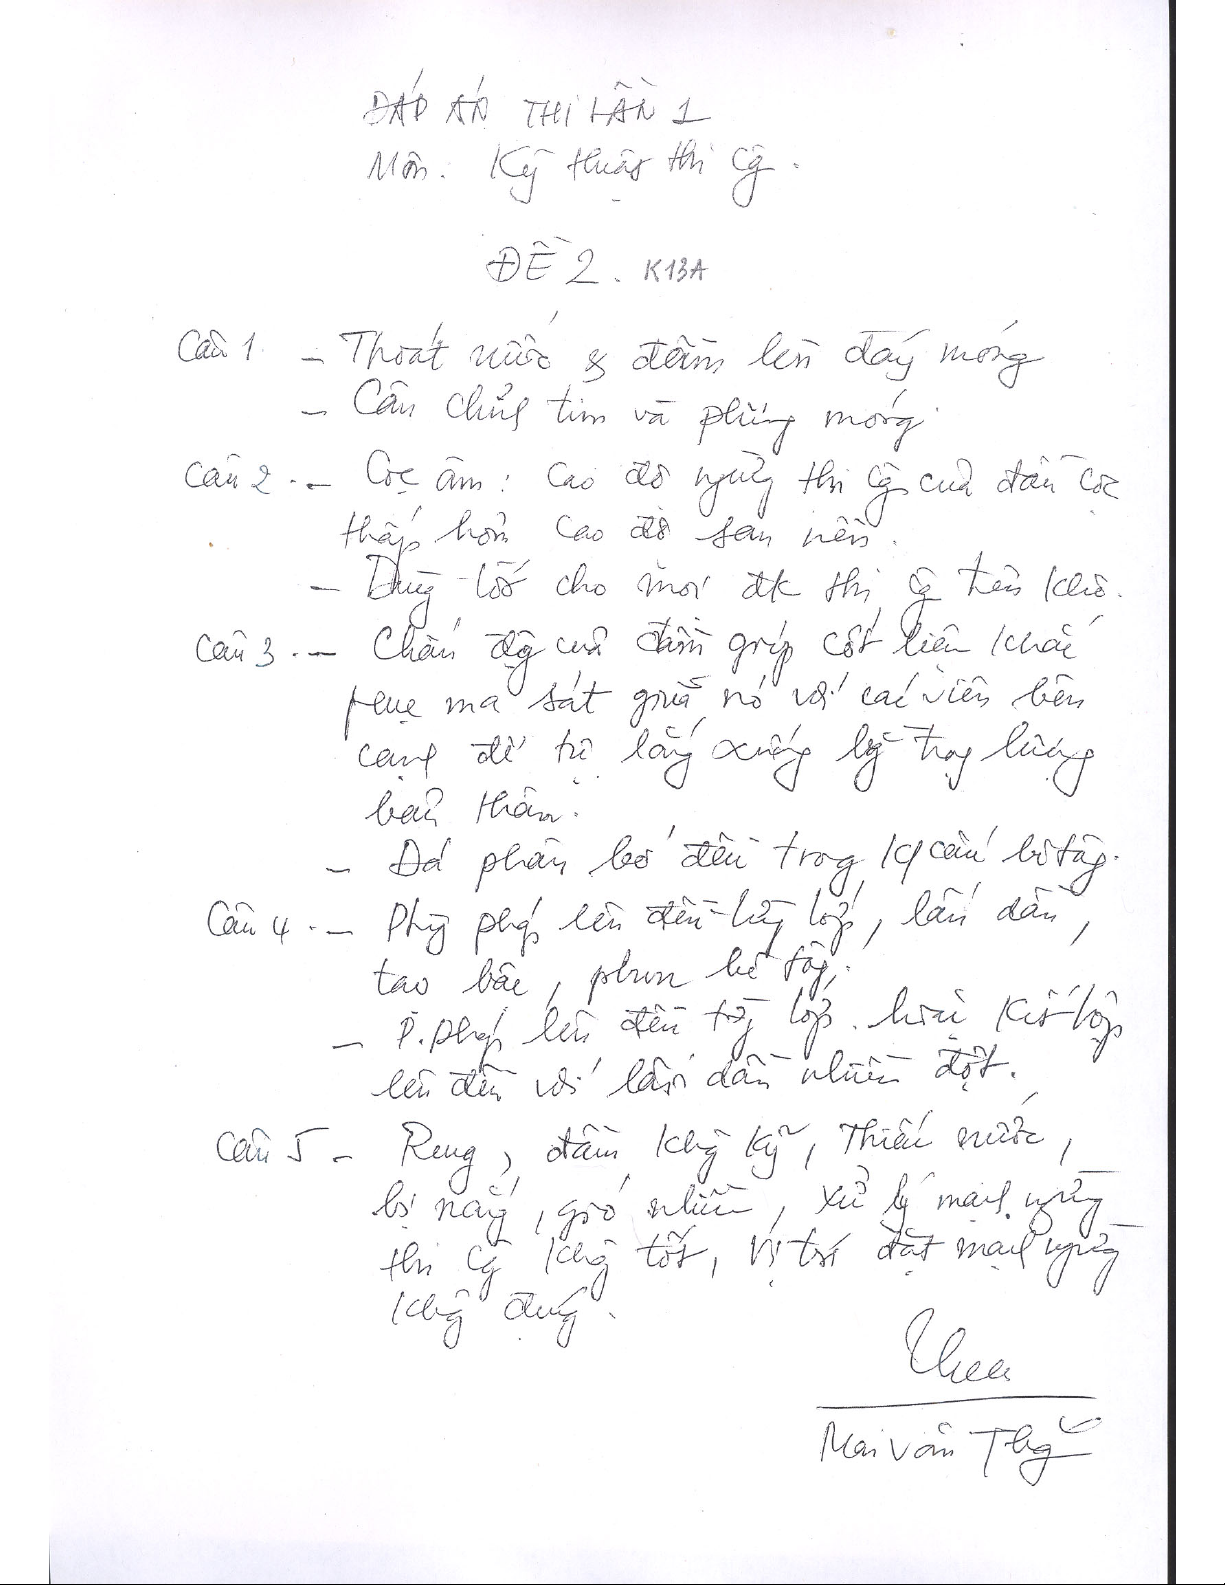 ĐÁP ÁN THI LẦN 1
Môn: Kỹ thuật thi Cg.
ĐỀ 2. K13A
Câu 1 - Thoát nước & đầm lèn đáy móng
- Căn chỉnh tim và phẳng móng.
Câu 2. - Cọc âm: Cao độ ngừng thi Cg của đầu cọc
thấp hơn cao độ san nền.
- Dùng tốt cho mọi đk thi Cg trên khô.
Câu 3. - Chấn động của đầm giúp cốt liệu khắc
phục ma sát giữa nó với các viên bên
cạnh để tự lắng xuống bằng trọng lượng
bản thân.
- Đá phân bố đều trong K/cấu bê tông.
Câu 4. - Phg pháp lên đều từng lớp, lấn dần,
tạo bậc, phun bê tông.
- P.pháp lên đều từng lớp. hoặc Kết hợp
lên đều với lấn dần nhiều đợt.
Câu 5 - Rung, đầm không kỹ, Thiếu nước,
bị nắng, gió nhiều, xử lý mạch ngừng
thi Cg không tốt, vị trí đặt mạch ngừng
không đúng.
Mai Văn